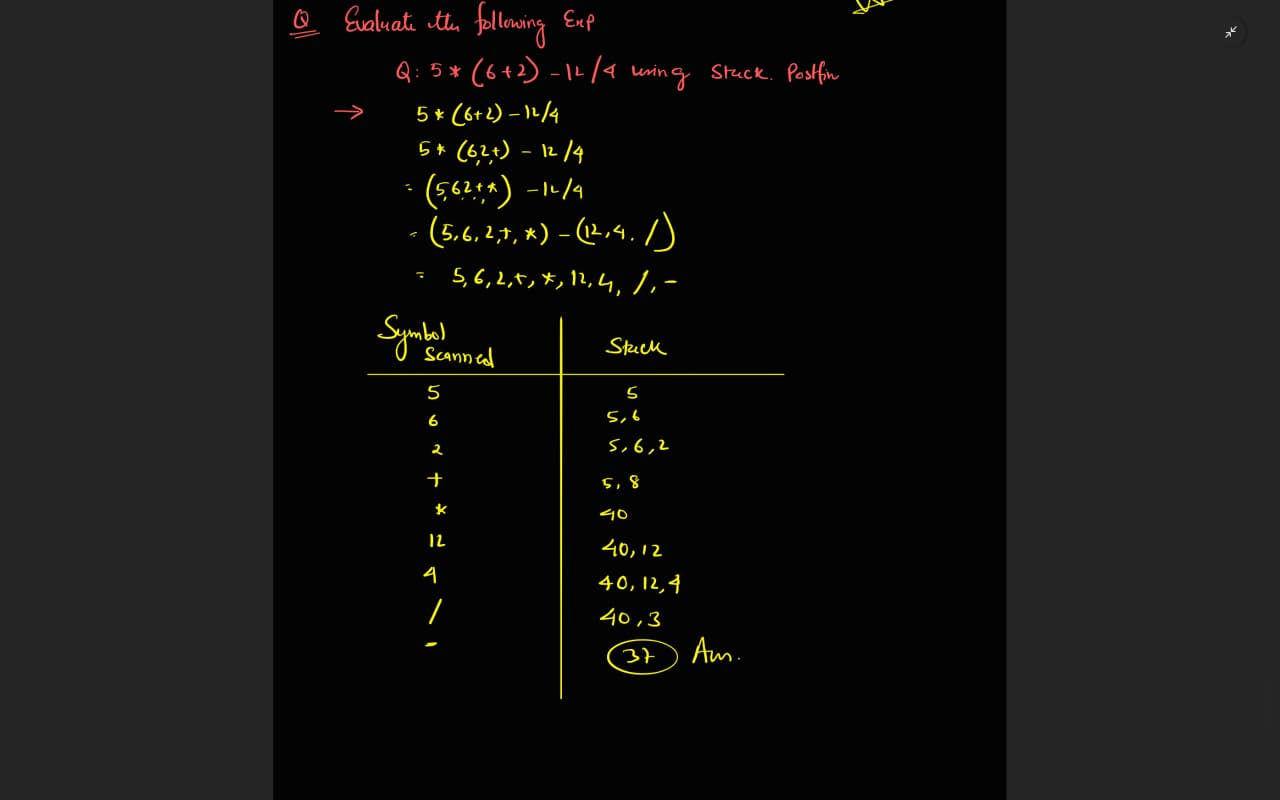 Q Evaluate the following Exp
Q: 5 * (6+2) - 12/4 using Stack. Postfix
→ 5 * (6+2) - 12/4
5 * (6,2,+) - 12/4
= (5,6,2,+,*) - 12/4
= (5,6,2,+,*) - (12,4, /)
= 5,6,2,+,*,12,4, /, -
Symbol Scanned Stack
5 5
6 5,6
2 5,6,2
+ 5,8
* 40
12 40,12
4 40,12,4
/ 40,3
- 37 Ans.